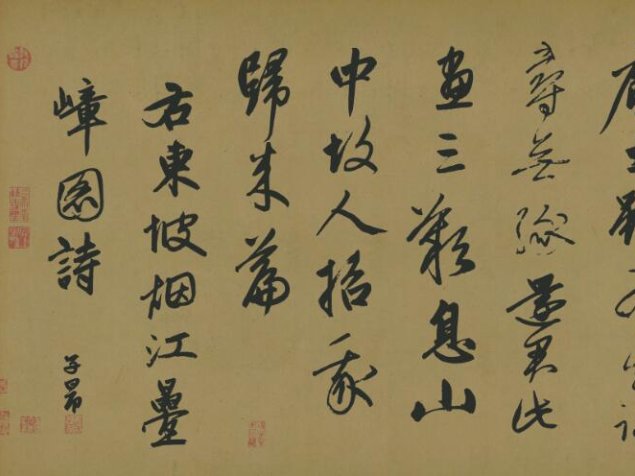 尋無緣還君此
畫三歎息山
中故人招我
歸来篇
右東坡烟江疊
嶂圖詩
子昂